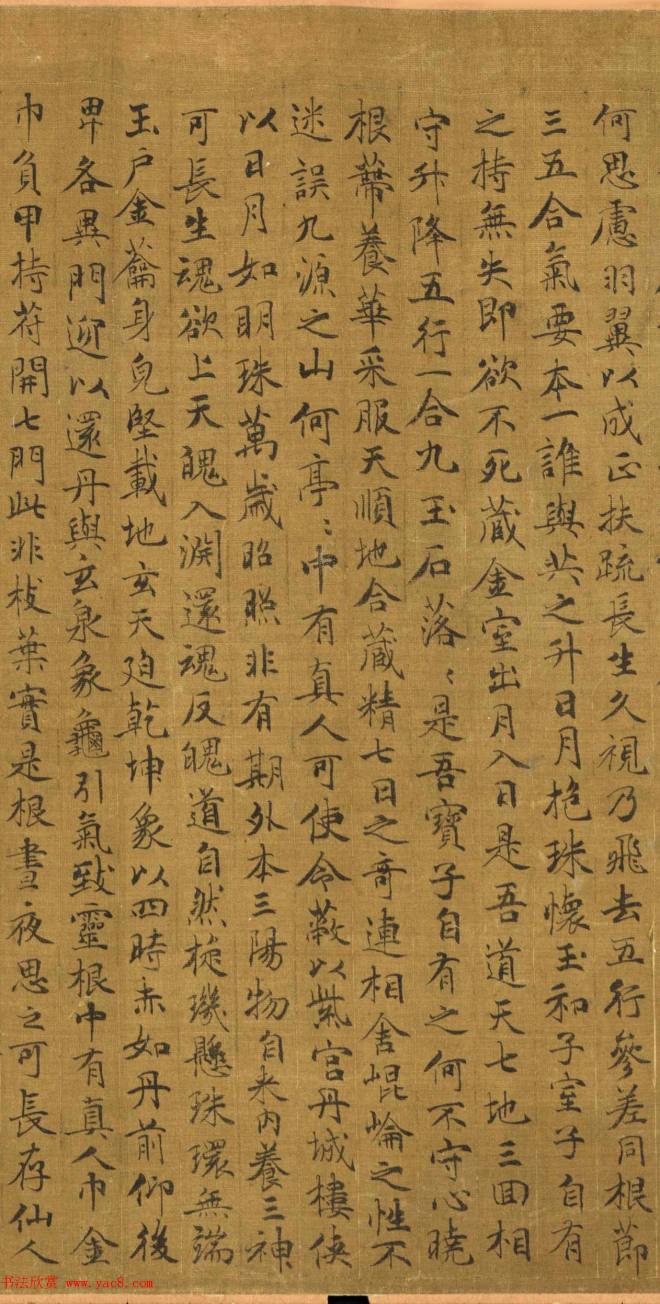 何思慮羽翼以成正扶疏長生久視乃飛去五行參差同根節
三五合氣要本一誰與共之升日月抱珠懷玉和子室子自有
之持無失即欲不死藏金室出月入日是吾道天七地三回相
守升降五行一合九玉石落〻是吾寶子自有之何不守心曉
根蔕養華采服天順地合藏精七日之奇連相舍崐崘之性不
迷誤九源之山何亭〻中有真人可使令蔽以紫宮丹城樓俠
以日月如明珠萬歲昭照非有期外本三陽物自来內養三神
可長生魂欲上天魄入淵還魂反魄道自然琁璣懸珠環無端
玉戶金籥身皃堅載地玄天迫乾坤象以四時赤如丹前仰後
卑各異門迎以還丹與玄泉象龜引氣致靈根中有真人巾金
巾負甲持苻開七門此非枝葉實是根晝夜思之可長存仙人
书法欣赏 www.yac8.com